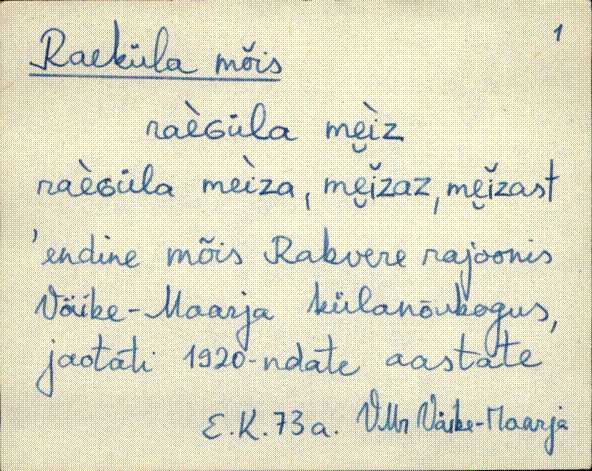 1
Raeküla mõis
raèGüla me̮ìz
raèGüla meìza, me̮ĭzaz, me̮ĭzast
'endine mõis Rakvere rajoonis
Väike-Maarja külanõukogus,
jaotati 1920-ndate aastate
E.K. 73a. VMr Väike-Maarja